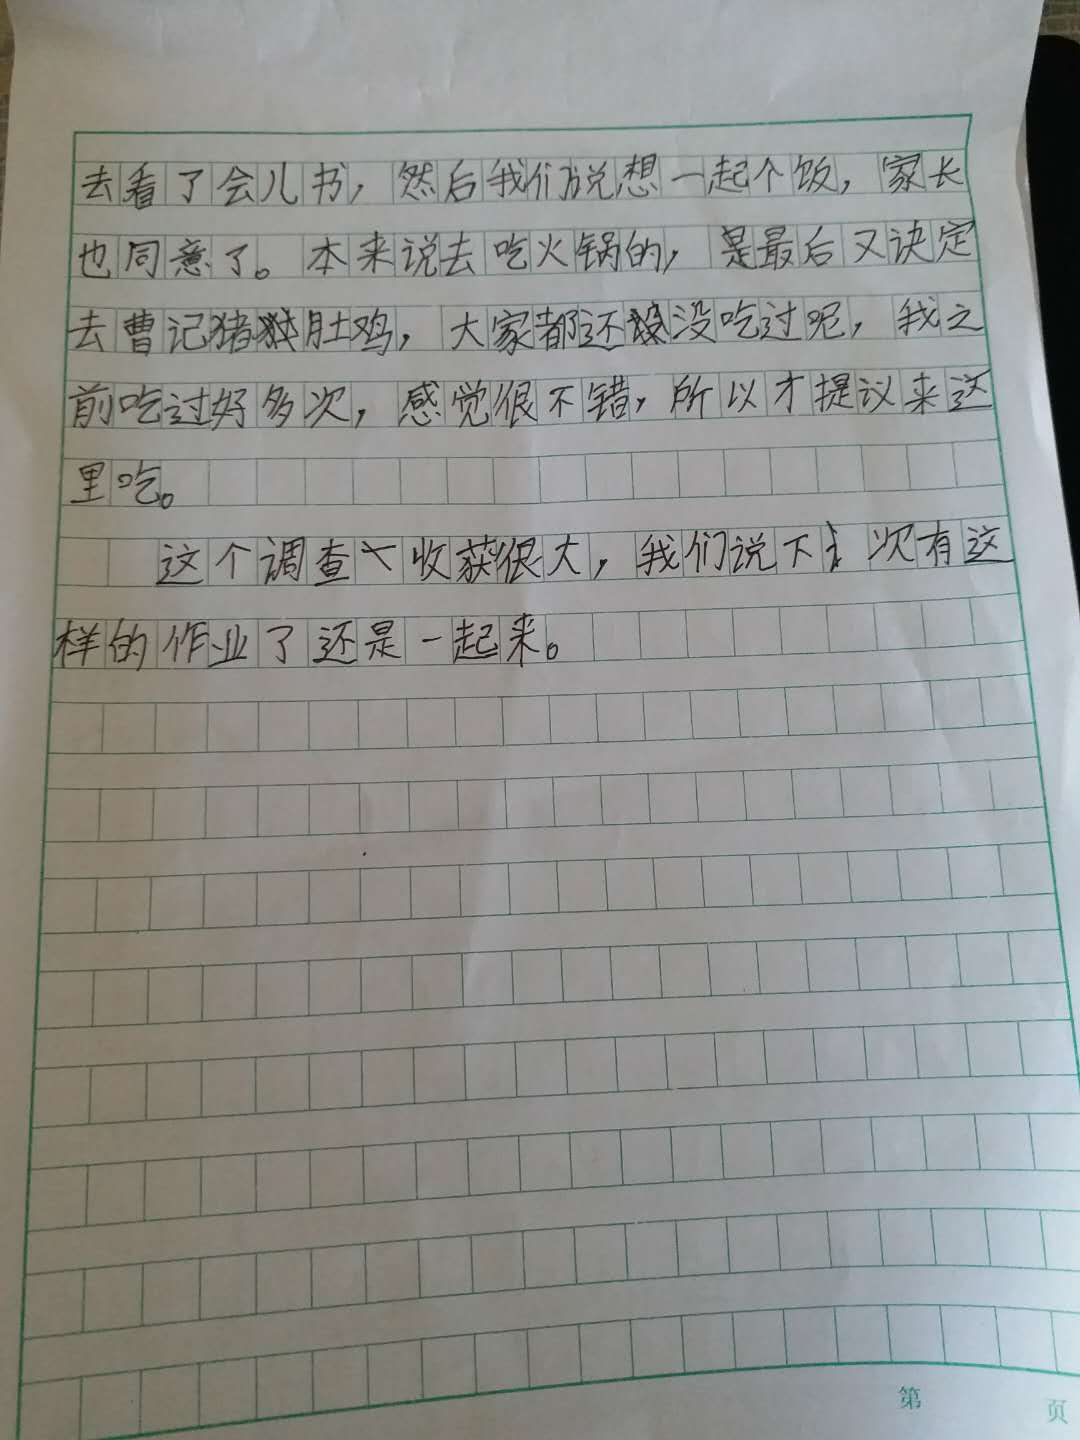 去看了会儿书，然后我们说想一起个饭，家长
也同意了。本来说去吃火锅的，是最后又诀定
去曹记猪肚鸡，大家都还没吃过呢，我之
前吃过好多次，感觉很不错，所以才提议来这
里吃。
这个调查收获很大，我们说下次有这
样的作业了还是一起来。
第 页